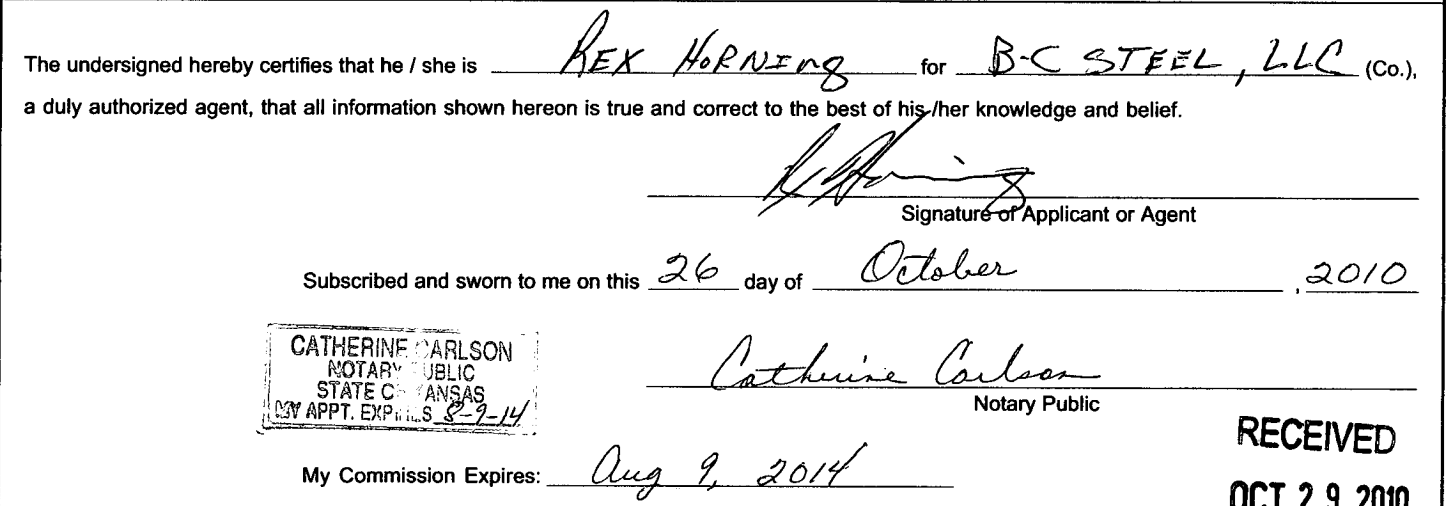 The undersigned hereby certifies that he / she is REX HORNING for B-C STEEL, LLC (Co.),
a duly authorized agent, that all information shown hereon is true and correct to the best of his /her knowledge and belief.
Signature of Applicant or Agent
Subscribed and sworn to me on this 26 day of October , 2010
CATHERINE CARLSON
NOTARY PUBLIC
STATE OF KANSAS
MY APPT. EXPIRES 8-9-14
Catherine Carlson
Notary Public
RECEIVED
My Commission Expires: Aug 9, 2014
OCT 29 2010